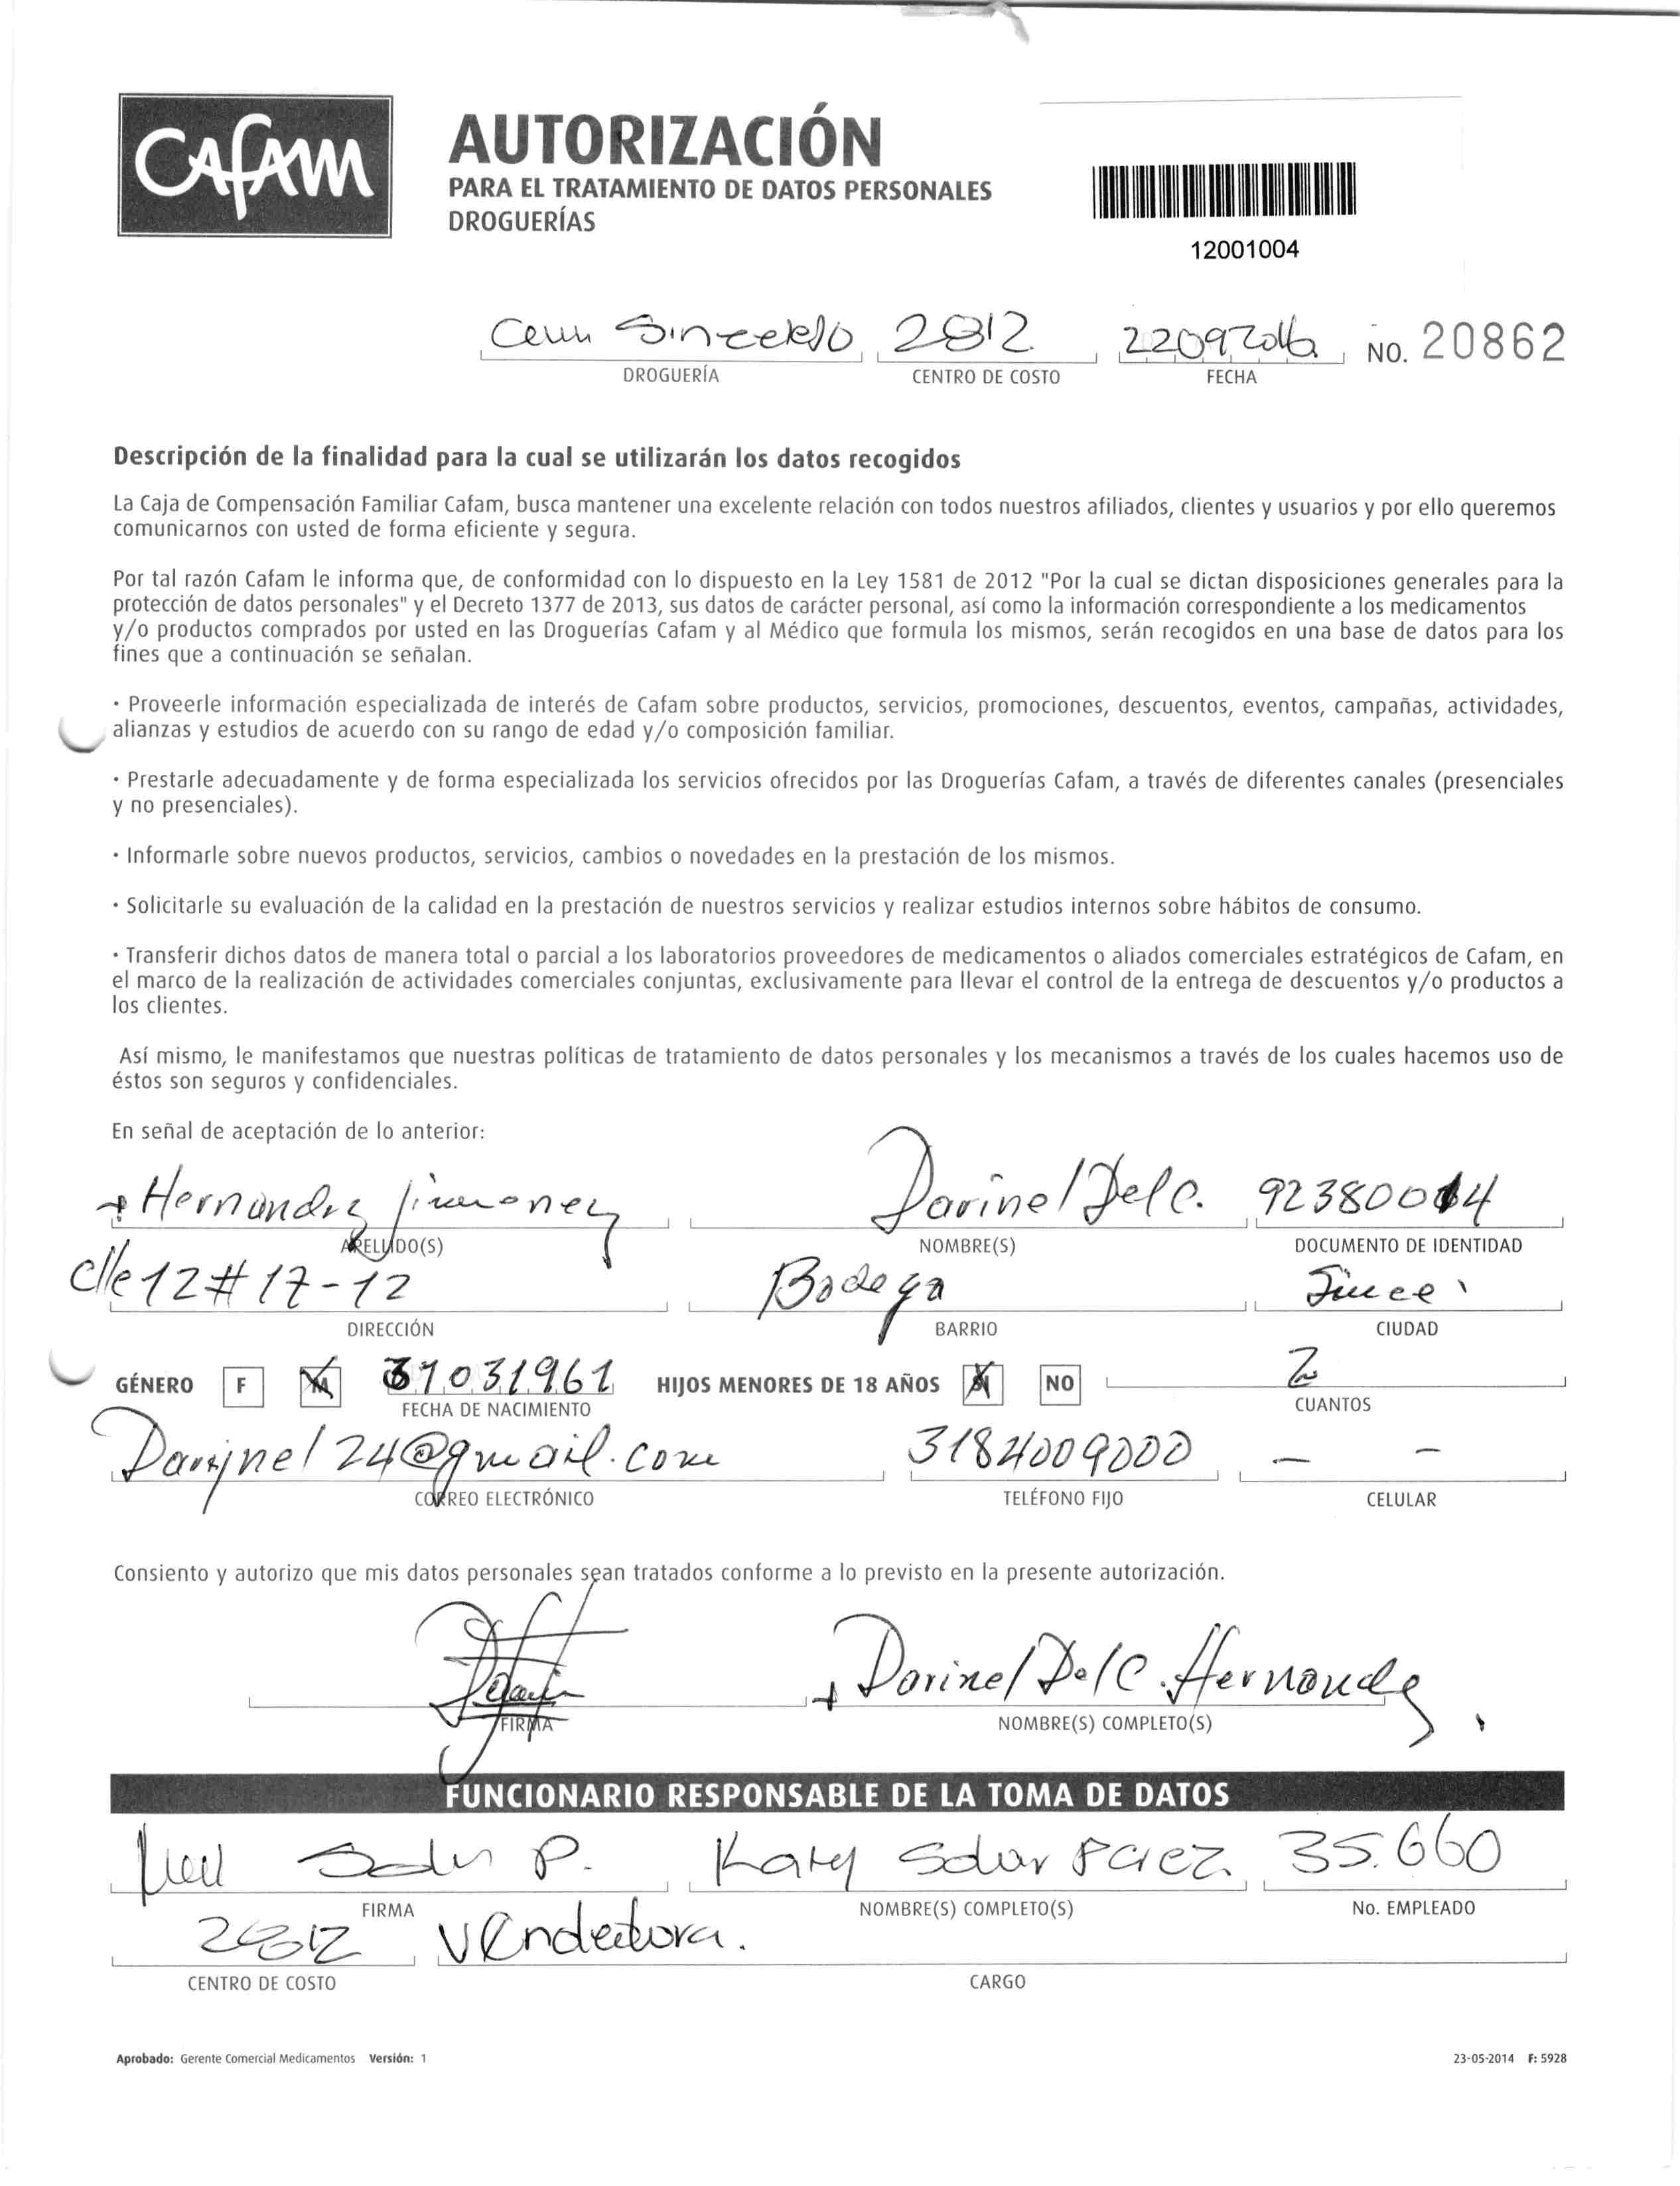 CAFAM
AUTORIZACIÓN
PARA EL TRATAMIENTO DE DATOS PERSONALES
DROGUERÍAS
12001004
2812 22092016 NO. 20862
DROGUERÍA CENTRO DE COSTO FECHA
Descripción de la finalidad para la cual se utilizarán los datos recogidos
La Caja de Compensación Familiar Cafam, busca mantener una excelente relación con todos nuestros afiliados, clientes y usuarios y por ello queremos
comunicarnos con usted de forma eficiente y segura.
Por tal razón Cafam le informa que, de conformidad con lo dispuesto en la Ley 1581 de 2012 "Por la cual se dictan disposiciones generales para la
protección de datos personales" y el Decreto 1377 de 2013, sus datos de carácter personal, así como la información correspondiente a los medicamentos
y/o productos comprados por usted en las Droguerías Cafam y al Médico que formula los mismos, serán recogidos en una base de datos para los
fines que a continuación se señalan.
· Proveerle información especializada de interés de Cafam sobre productos, servicios, promociones, descuentos, eventos, campañas, actividades,
alianzas y estudios de acuerdo con su rango de edad y/o composición familiar.
· Prestarle adecuadamente y de forma especializada los servicios ofrecidos por las Droguerías Cafam, a través de diferentes canales (presenciales
y no presenciales).
· Informarle sobre nuevos productos, servicios, cambios o novedades en la prestación de los mismos.
· Solicitarle su evaluación de la calidad en la prestación de nuestros servicios y realizar estudios internos sobre hábitos de consumo.
· Transferir dichos datos de manera total o parcial a los laboratorios proveedores de medicamentos o aliados comerciales estratégicos de Cafam, en
el marco de la realización de actividades comerciales conjuntas, exclusivamente para llevar el control de la entrega de descuentos y/o productos a
los clientes.
Así mismo, le manifestamos que nuestras políticas de tratamiento de datos personales y los mecanismos a través de los cuales hacemos uso de
éstos son seguros y confidenciales.
En señal de aceptación de lo anterior:
Hernandez Jimenez Darinel Del C. 92380014
APELLIDO(S) NOMBRE(S) DOCUMENTO DE IDENTIDAD
clle 12 # 17-12 Bodega Since
DIRECCIÓN BARRIO CIUDAD
GÉNERO F M 31031961 HIJOS MENORES DE 18 AÑOS SI NO 2
FECHA DE NACIMIENTO CUANTOS
Darinel24@gmail.com 3184009000 - -
CORREO ELECTRÓNICO TELÉFONO FIJO CELULAR
Consiento y autorizo que mis datos personales sean tratados conforme a lo previsto en la presente autorización.
Darinel Del C. Hernandez
FIRMA NOMBRE(S) COMPLETO(S)
FUNCIONARIO RESPONSABLE DE LA TOMA DE DATOS
P. Katy Solar Paez 35.660
FIRMA NOMBRE(S) COMPLETO(S) No. EMPLEADO
2812 Vendedora.
CENTRO DE COSTO CARGO
Aprobado: Gerente Comercial Medicamentos Versión: 1 23-05-2014 F: 5928